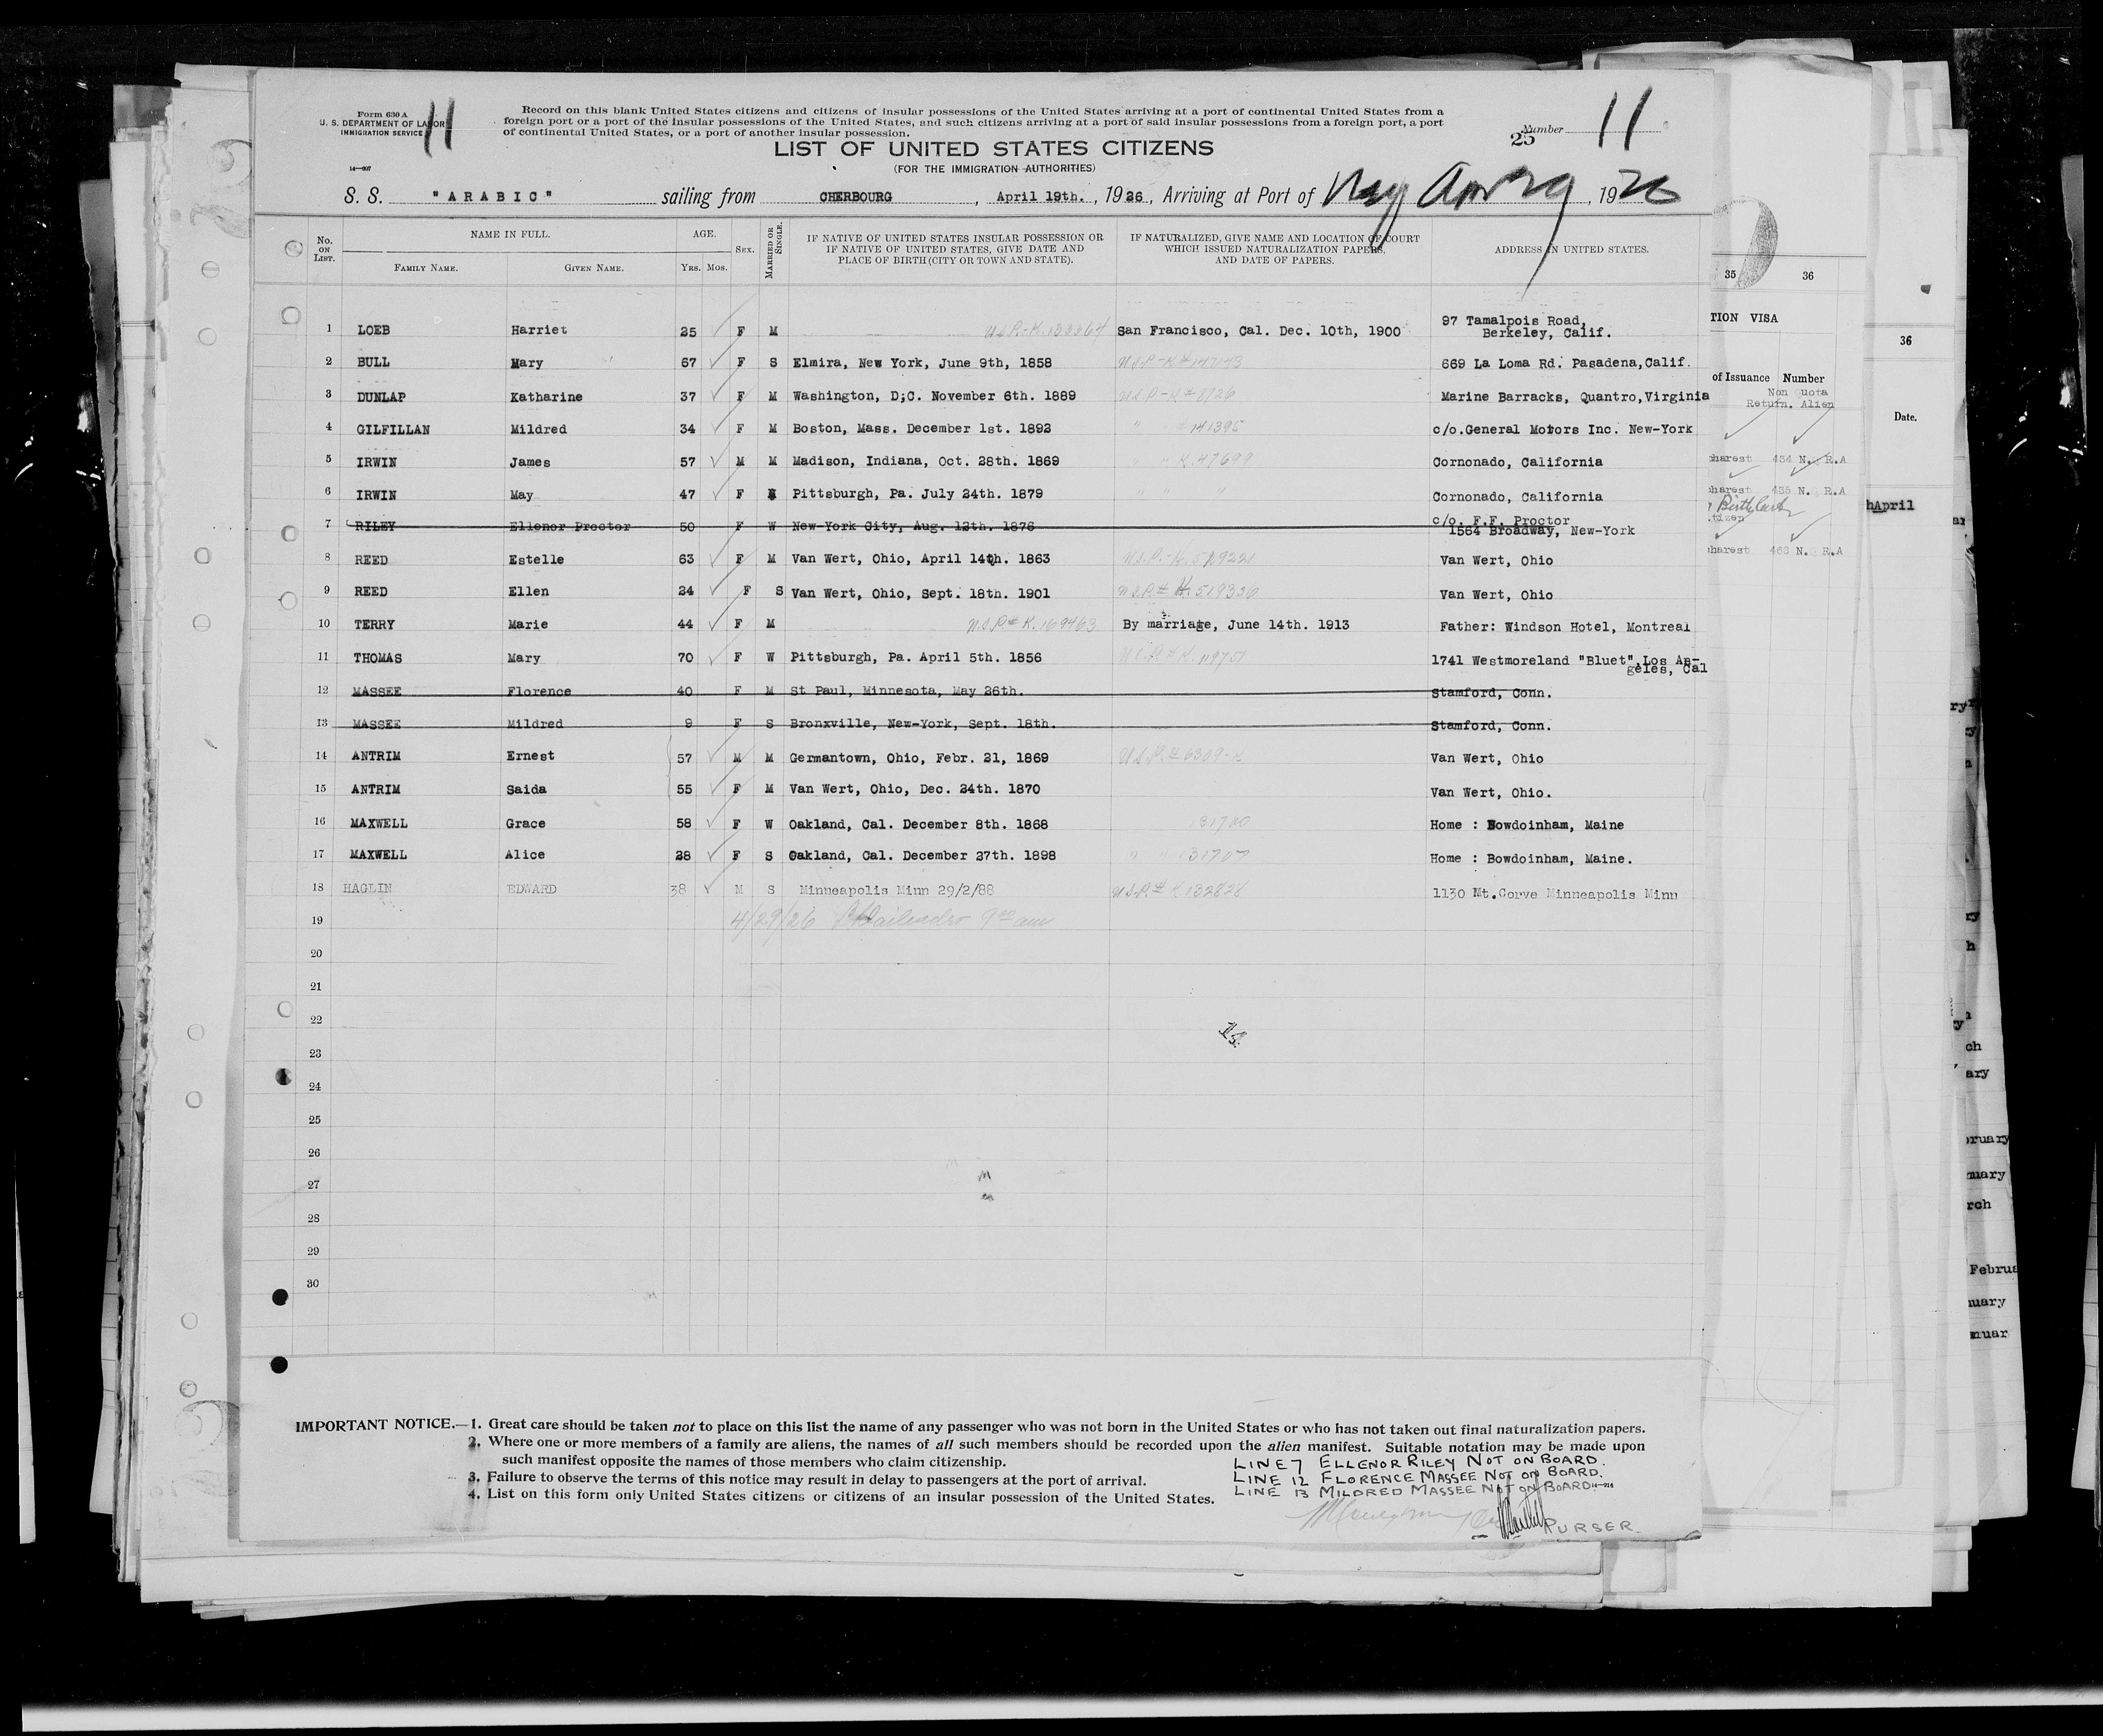 Form 630 A
U. S. DEPARTMENT OF LABOR
IMMIGRATION SERVICE
11
14—607
Record on this blank United States citizens and citizens of insular possessions of the United States arriving at a port of continental United States from a
foreign port or a port of the insular possessions of the United States, and such citizens arriving at a port of said insular possessions from a foreign port, a port
of continental United States, or a port of another insular possession.
25 Number 11
LIST OF UNITED STATES CITIZENS
(FOR THE IMMIGRATION AUTHORITIES)
S. S. "ARABIC" sailing from CHERBOURG, April 19th., 1926, Arriving at Port of 1926
No. ON LIST.
NAME IN FULL.
FAMILY NAME. GIVEN NAME.
AGE.
YRS. MOS.
SEX.
MARRIED OR SINGLE.
IF NATIVE OF UNITED STATES INSULAR POSSESSION OR
IF NATIVE OF UNITED STATES, GIVE DATE AND
PLACE OF BIRTH (CITY OR TOWN AND STATE).
IF NATURALIZED, GIVE NAME AND LOCATION OF COURT
WHICH ISSUED NATURALIZATION PAPERS,
AND DATE OF PAPERS.
ADDRESS IN UNITED STATES.
1 LOEB Harriet 25 F M U.S.P.-K.133364 San Francisco, Cal. Dec. 10th, 1900 97 Tamalpois Road,
Berkeley, Calif.
2 BULL Mary 67 F S Elmira, New York, June 9th, 1858 U.S.P.-K#147143 669 La Loma Rd. Pasadena,Calif.
3 DUNLAP Katharine 37 F M Washington, D;C. November 6th. 1889 U.S.P.-K#8926 Marine Barracks, Quantro,Virginia
4 GILFILLAN Mildred 34 F M Boston, Mass. December 1st. 1892 " #141395 c/o.General Motors Inc. New-York
5 IRWIN James 57 M M Madison, Indiana, Oct. 28th. 1869 " " K.47699 Cornonado, California
6 IRWIN May 47 F Pittsburgh, Pa. July 24th. 1879 " " " Cornonado, California
7 RILEY Ellenor Proctor 50 F W New-York City, Aug. 12th. 1876 c/o. F.F. Proctor
1564 Broadway, New-York
8 REED Estelle 63 F M Van Wert, Ohio, April 14th. 1863 U.S.P.-K. Van Wert, Ohio
9 REED Ellen 24 F S Van Wert, Ohio, Sept. 18th. 1901 U.S.P.# K.519336 Van Wert, Ohio
10 TERRY Marie 44 F M U.S.P.# K.169463 By marriage, June 14th. 1913 Father: Windson Hotel, Montreal
11 THOMAS Mary 70 F W Pittsburgh, Pa. April 5th. 1856 U.S.P.# K.119751 1741 Westmoreland "Bluet",Los An-
geles, Cal
12 MASSEE Florence 40 F M St Paul, Minnesota, May 26th. Stamford, Conn.
13 MASSEE Mildred 9 F S Bronxville, New-York, Sept. 18th. Stamford, Conn.
14 ANTRIM Ernest 57 M M Germantown, Ohio, Febr. 21, 1869 U.S.P.#6309-K Van Wert, Ohio
15 ANTRIM Saida 55 F M Van Wert, Ohio, Dec. 24th. 1870 Van Wert, Ohio.
16 MAXWELL Grace 58 F W Oakland, Cal. December 8th. 1868 131700 Home : Bowdoinham, Maine
17 MAXWELL Alice 28 F S Oakland, Cal. December 27th. 1898 " " 131707 Home : Bowdoinham, Maine.
18 HAGLIN EDWARD 38 M S Minneapolis Minn 29/2/88 U.S.P.# K132828 1130 Mt.Corve Minneapolis Minn
19 4/29/26 9 00 am
20
21
22
14.
23
24
25
26
27
28
29
30
IMPORTANT NOTICE.—1. Great care should be taken not to place on this list the name of any passenger who was not born in the United States or who has not taken out final naturalization papers.
2. Where one or more members of a family are aliens, the names of all such members should be recorded upon the alien manifest. Suitable notation may be made upon
such manifest opposite the names of those members who claim citizenship.
3. Failure to observe the terms of this notice may result in delay to passengers at the port of arrival.
4. List on this form only United States citizens or citizens of an insular possession of the United States.
LINE 7 ELLENOR RILEY NOT ON BOARD.
LINE 12 FLORENCE MASSEE NOT ON BOARD.
LINE 13 MILDRED MASSEE NOT ON BOARD
PURSER.
35 36
TION VISA
of Issuance Number
Non quota
Return. Alien
harest 434 N. R.A
harest 435 N. R.A
Birth Cert
tizen
harest 463 N. R.A
36
Date.
April
ruary
uary
rch
Februa
uary
nuar